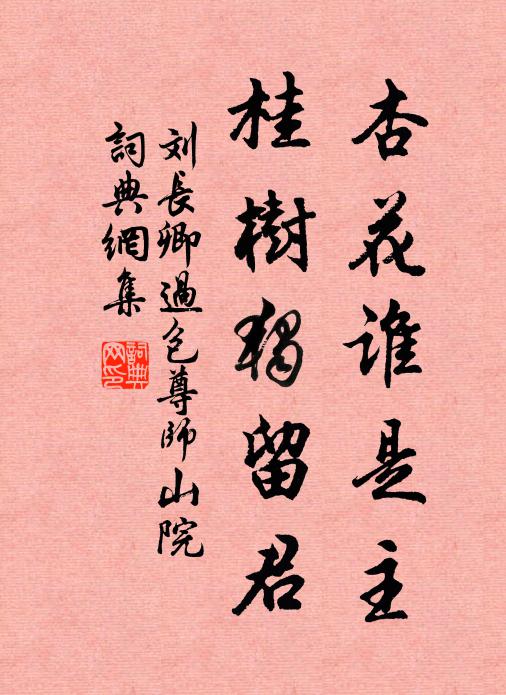 杏花谁是主
桂樹獨留君
刘長卿過包尊師山院
詞典網集
詞典
网印